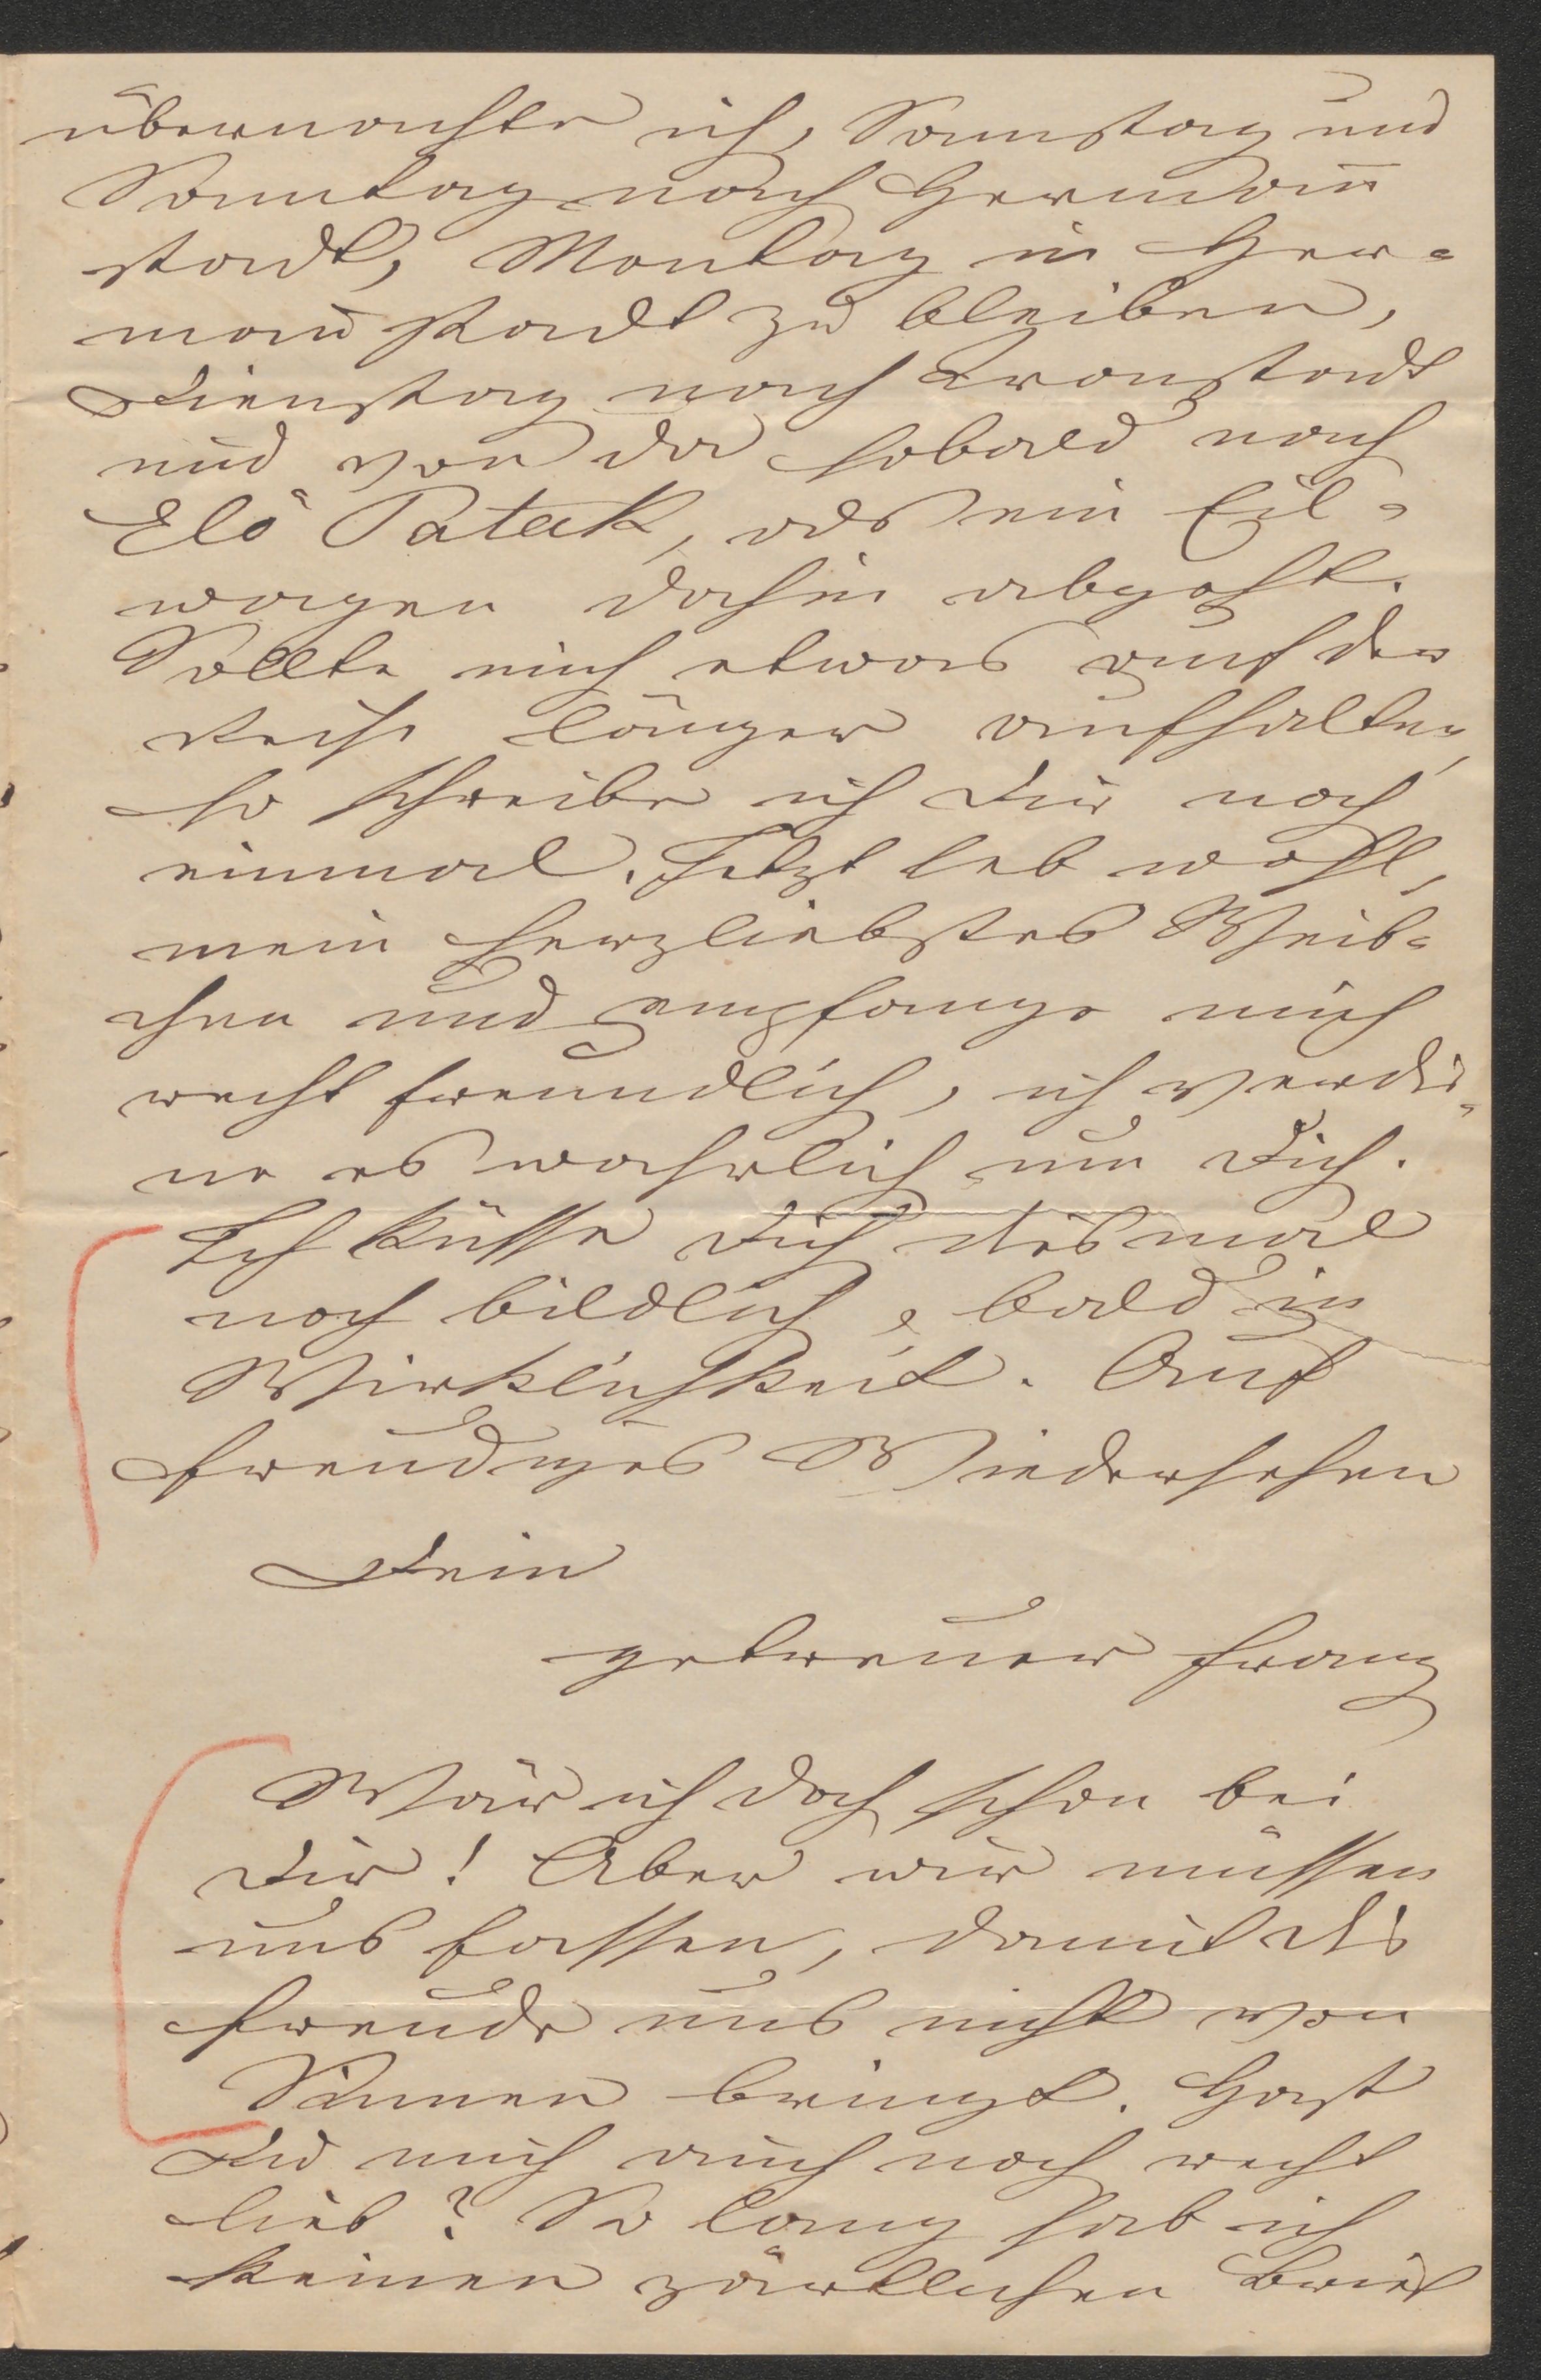 übernachte ich, Samstag und
Sonntag nach Hermann
stadt, Montag in Her-
mannstadt zu bleiben,
Dienstag nach Kronstadt
und von da sobald nach
Elö Patak, als ein Eil-
wagen dahin abgeht.
Sollte mich etwas auf der
Reise länger aufhalten,
so schreibe ich Dir noch
einmal. Jetzt leb wohl,
mein herzliebstes Weib-
chen und empfange mich
recht freundlich, ich verdie-
ne es wahrlich um Dich.
Ich küsse Dich diesmal
noch bildlich, bald in
Wirklichkeit. Auf
freudiges Wiedersehen
Dein
getreuer Franz
Wär ich doch schon bei
Dir! Aber wir müssen
uns fassen, damit die
Freude uns nicht von
Sinnen bringt. Hast
Du mich auch noch recht
lieb? So lang hab ich
keinen zärtlichen Brief